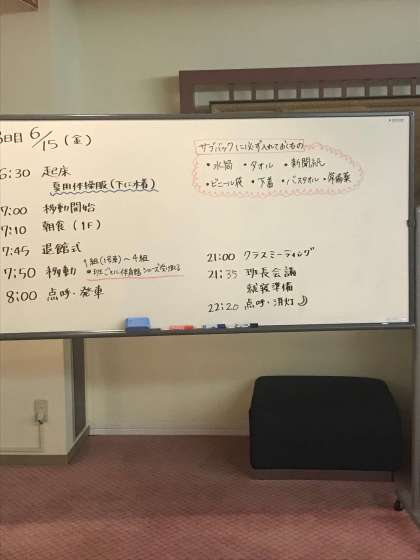 3日目 6/15(金)
6:30 起床
夏用体操服(下に水着)
7:00 移動開始
7:10 朝食(1F)
7:45 退館式
7:50 移動
1組(1号車)〜4組
●班ごとに体育館シューズ受け取る
8:00 点呼・発車
サブバックに必ず入れておくもの
・水筒 ・タオル ・新聞紙
・ビニール袋 ・下着 ・バスタオル ・常備薬
21:00 クラスミーティング
21:35 班長会議
就寝準備
22:20 点呼・消灯